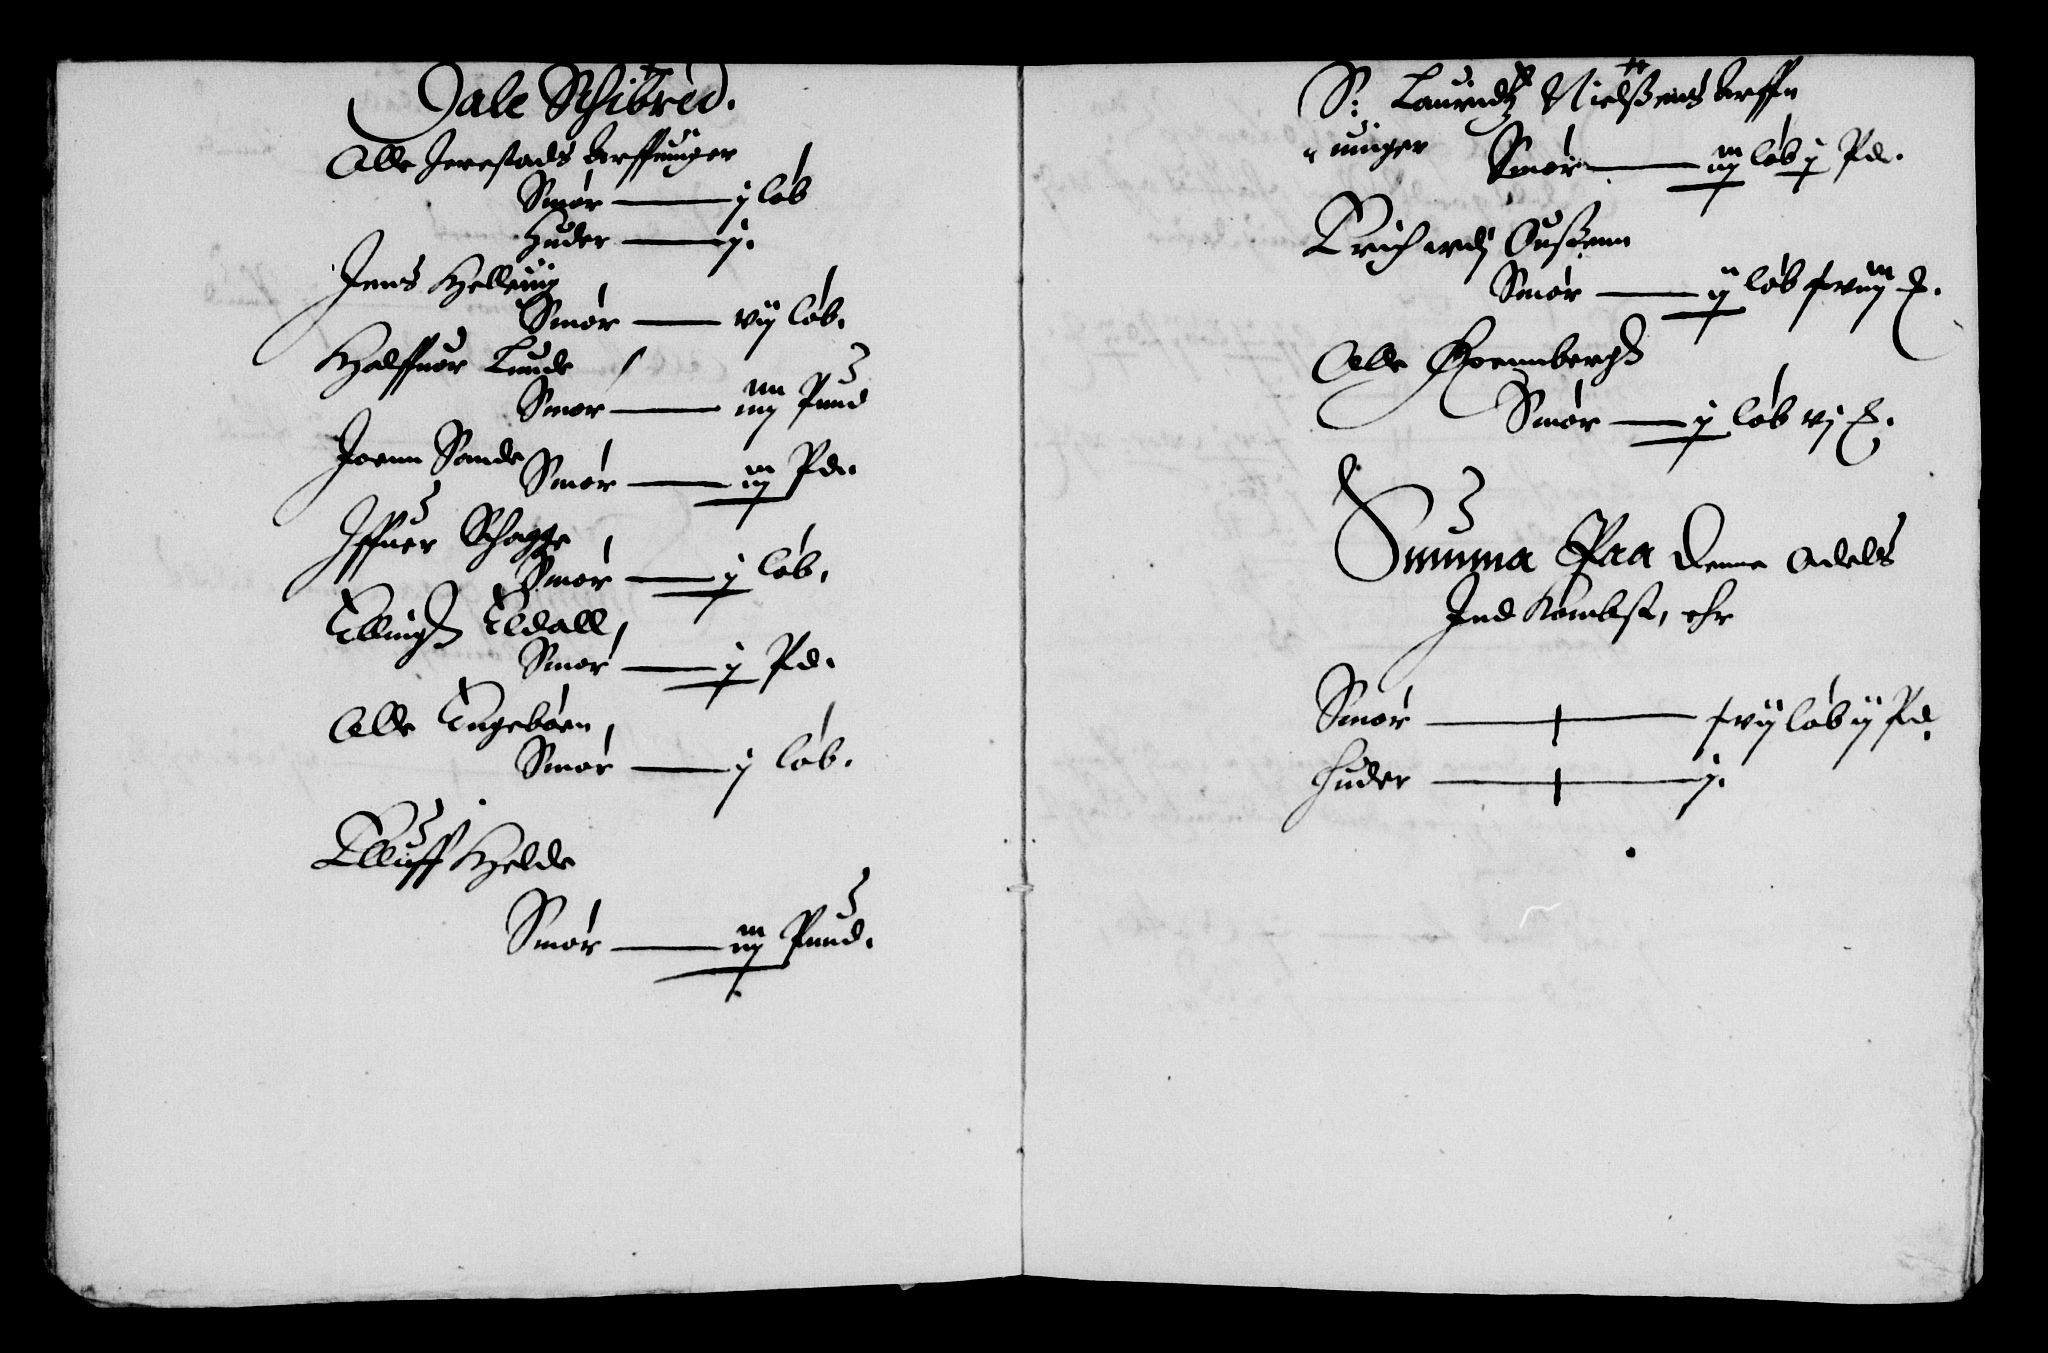 Dale Schibred.
Olle Jerestads Arffninger
Smør — j løb
Huder — j.
Jens Helleuig
Smør — vij løb.
Halffuor Lunde
Smør — iiij Pund
Joenn Sande
Smør — iij Pd.
Iffuer Schagge
Smør — j løb.
Ellingh Eldall
Smør — j Pd.
Olle Engebøen
Smør — j løb.
Elluff Helde
Smør — iij Pund.
S: Lauridtz Nielßens Arffu
inger Smør — iij løb j Pd.
Erich Oußenn
Smør — ij løb
Olle Choennbergh
Smør — j løb vj
Summa Paa denne Odels
Ind Kombst, ehr
Smør — xvij løb ij Pd.
Huder — j.